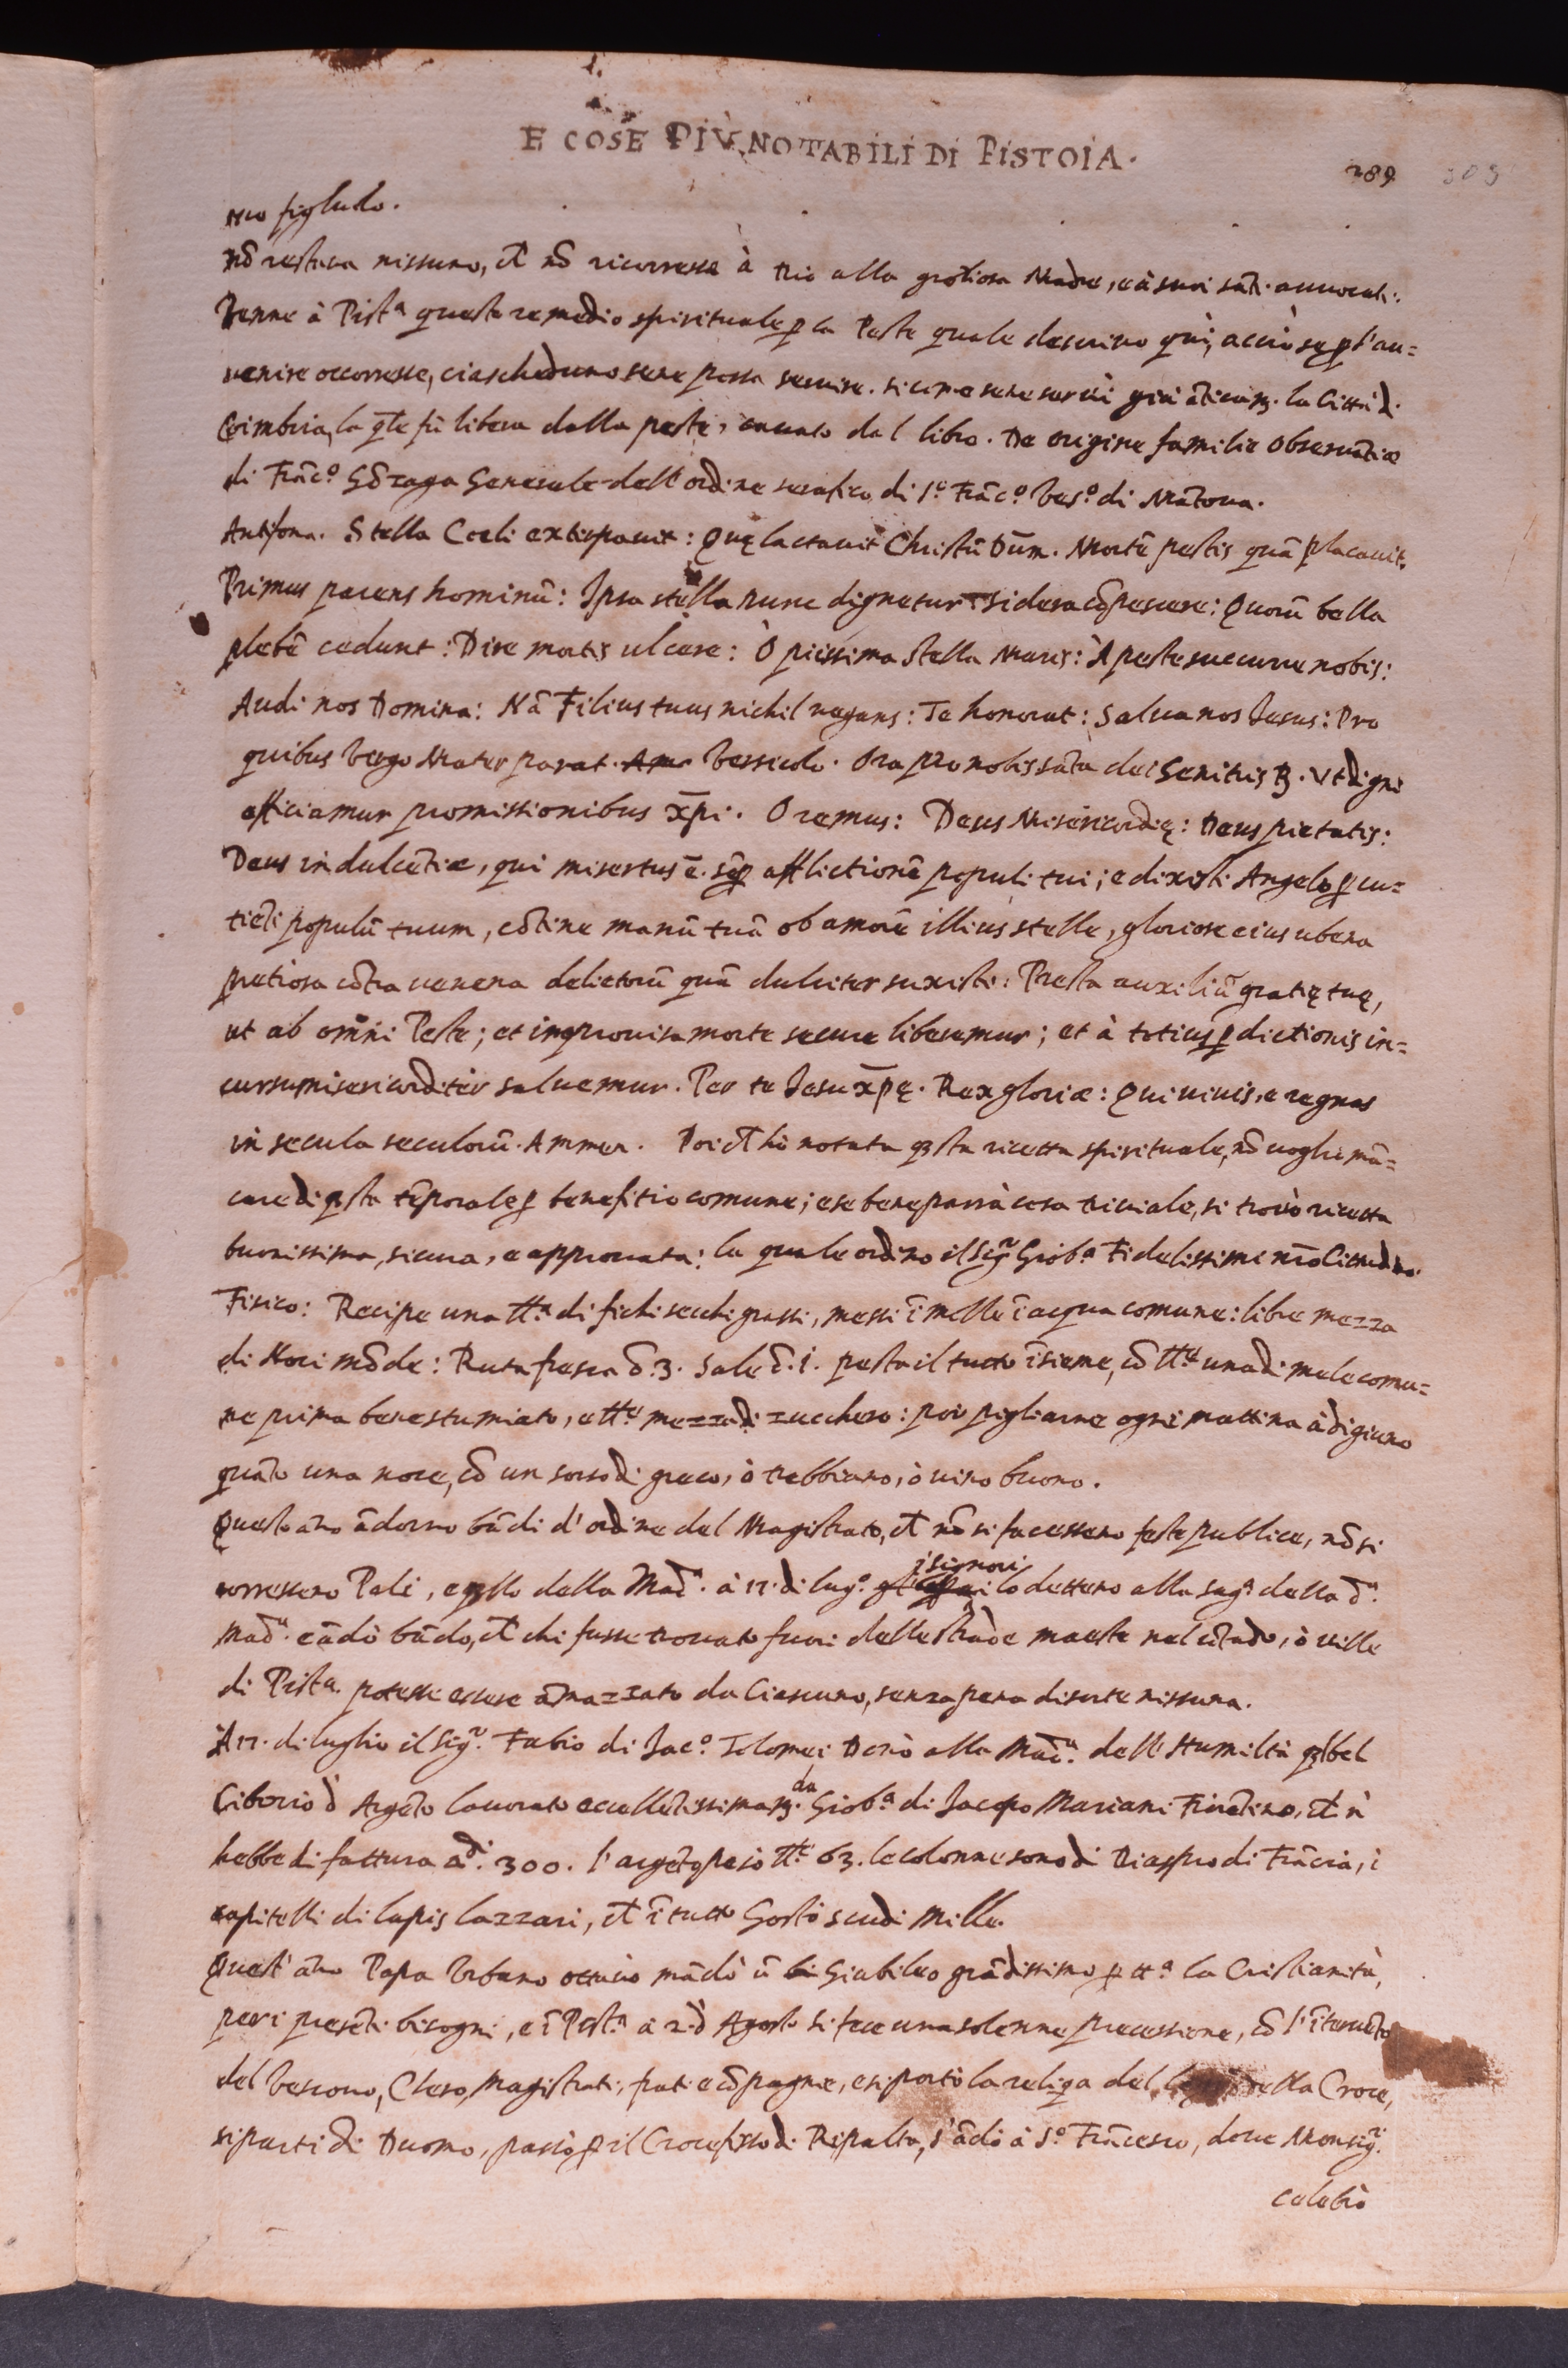 E COSE PIÙ NOTABILI DI PISTOIA.
289 309
suo figliulo.
nõ restava nissuno, ch̃ nõ ricorresse à Dio alla glosa Madre, e à suoi sãti avvocati.
Venne à Pistª questo remedio spirituale ꝑ la Peste quale descrivo quì, acciò se ꝑ l'av=
venire occorresse, ciascheduno sene possa servire. si come sene servì già ãticam. la Città di
Coimbria, la qle fù libera dalla peste, cavato dal libro. De origine familie Observãtiæ
di Frãcº Gõzaga Generale dell'ordine serafico di Sº Frãcº Vesº di Mãtova.
Antifona. Stella Cœli extirpavit: Quę lactavit Christũ Dũm. Mortẽ pestis quã plãtavit.
Primus parens hominũ: Ipsa stella nunc dignetur sidera cõpescere: Quorũ bella
plebẽ cedunt: Dire mortis ulcere: Ò piissima Stella Maris: À peste succurre nobis:
Audi nos Domina: Nã Filius tuus nichil negans: Te honorat: Salva nos Jesus: Pro
quibus Virgo Mater parat. Versicolo. Ora pro nobis sãta dei Genitris ℞. Vt digni
afficiamur promissionibus xp̃i. Oremus: Deus Misericordię: Deus pietatis:
Deus indulcẽtiæ, qui misertus ẽ. sẽꝑ afflictionẽ populi tui; e dixisti Angelo ꝑcu=
tiẽti populũ tuum, cõtine manũ tuã ob amorẽ illius stelle, gloriose eius ubera
pretiosa cõtra venena delictorũ quã dulciter suxisti: Presta auxiliũ gratię tuę,
ut ab omni Peste; et improvisa morte secure liberemur; et à totius ꝑdictionis in=
cursu misericorditer salvemur. Per te Jesu xp̃ę. Rex gloriæ: Qui vivis, e regnas
in secula seculorũ. Ammen. Poi ch̃ hò notata qsta ricetta spirituale, nõ voglio mã=
care di qsta tẽporale ꝑ benefitio comune; e se bene parrà cosa triviale, si trovò ricetta
buonissima, sicura, e approvata: la quale ordino il Sigʳ Giobª Fidelissimi nr̃o Cittadino
Fisico: Recipe una ttª di fichi secchi grassi, messi ĩ molle ĩ acqua comune: libre mezza
di Noci mõde: Ruta fresca õ. 3. Sale õ. 1. pesta il tutto ĩsieme, cõ tte una di mele comu=
ne prima bene stumiato, e tte mezza di zucchero: poi pigliarne ogni mattina à digiuno
quãto una noce, cõ un sorso di greco, ò trebbiano, ò vino buono.
Questo ãno ãdorno bãdi d'ordine del Magistrato, ch̃ nõ si facessero feste publice, nõ si
corressero Pali, e qllo della Madª. à 17. di lugº. i signori lo dettero alla Sagª. della dª.
Madª. e ãdò bãdo, ch̃ chi fusse trovato fuori delle strade maeste nel cõtado, ò ville
di Pistª. potesse essere ãmazzato da Ciascuno, senza pena di sorte nissuna.
A 17. di luglio il Sigʳ. Fabio di Jacº. Tolomei Donò alla Madª. dell'Humiltà ql bel
Ciborio d'Argẽto lavorato eccellẽtissimam. da Giobª di Jacopo Mariani Fiorẽtino, ch̃ n'
hebbe di fattura ▽di. 300. l'argẽto pesò tte 63. le colonne sono di Diaspro di Frãcia, i
capitelli di lapis lazzari, ch̃ ĩ tutto Gostò scudi mille.
Quest'ãno Papa Urbano ottavo mãdò ũ Giubileo grãdissimo ꝑ ttª la Cristianità,
per i presẽti bisogni, e ĩ Pistª à 2. d'Agosto si fece una solenne precessione, cõ l'ĩtervẽto
del Vescovo, Clero, Magistrati, frati e cõpagnie, e si portò la reliqa del della Croce,
si partì di Duomo, passò ꝑ il Crocefisso di Ripalta, s'ãdò à Sº. Frãcesco, dove Monsigʳ.
celebrò